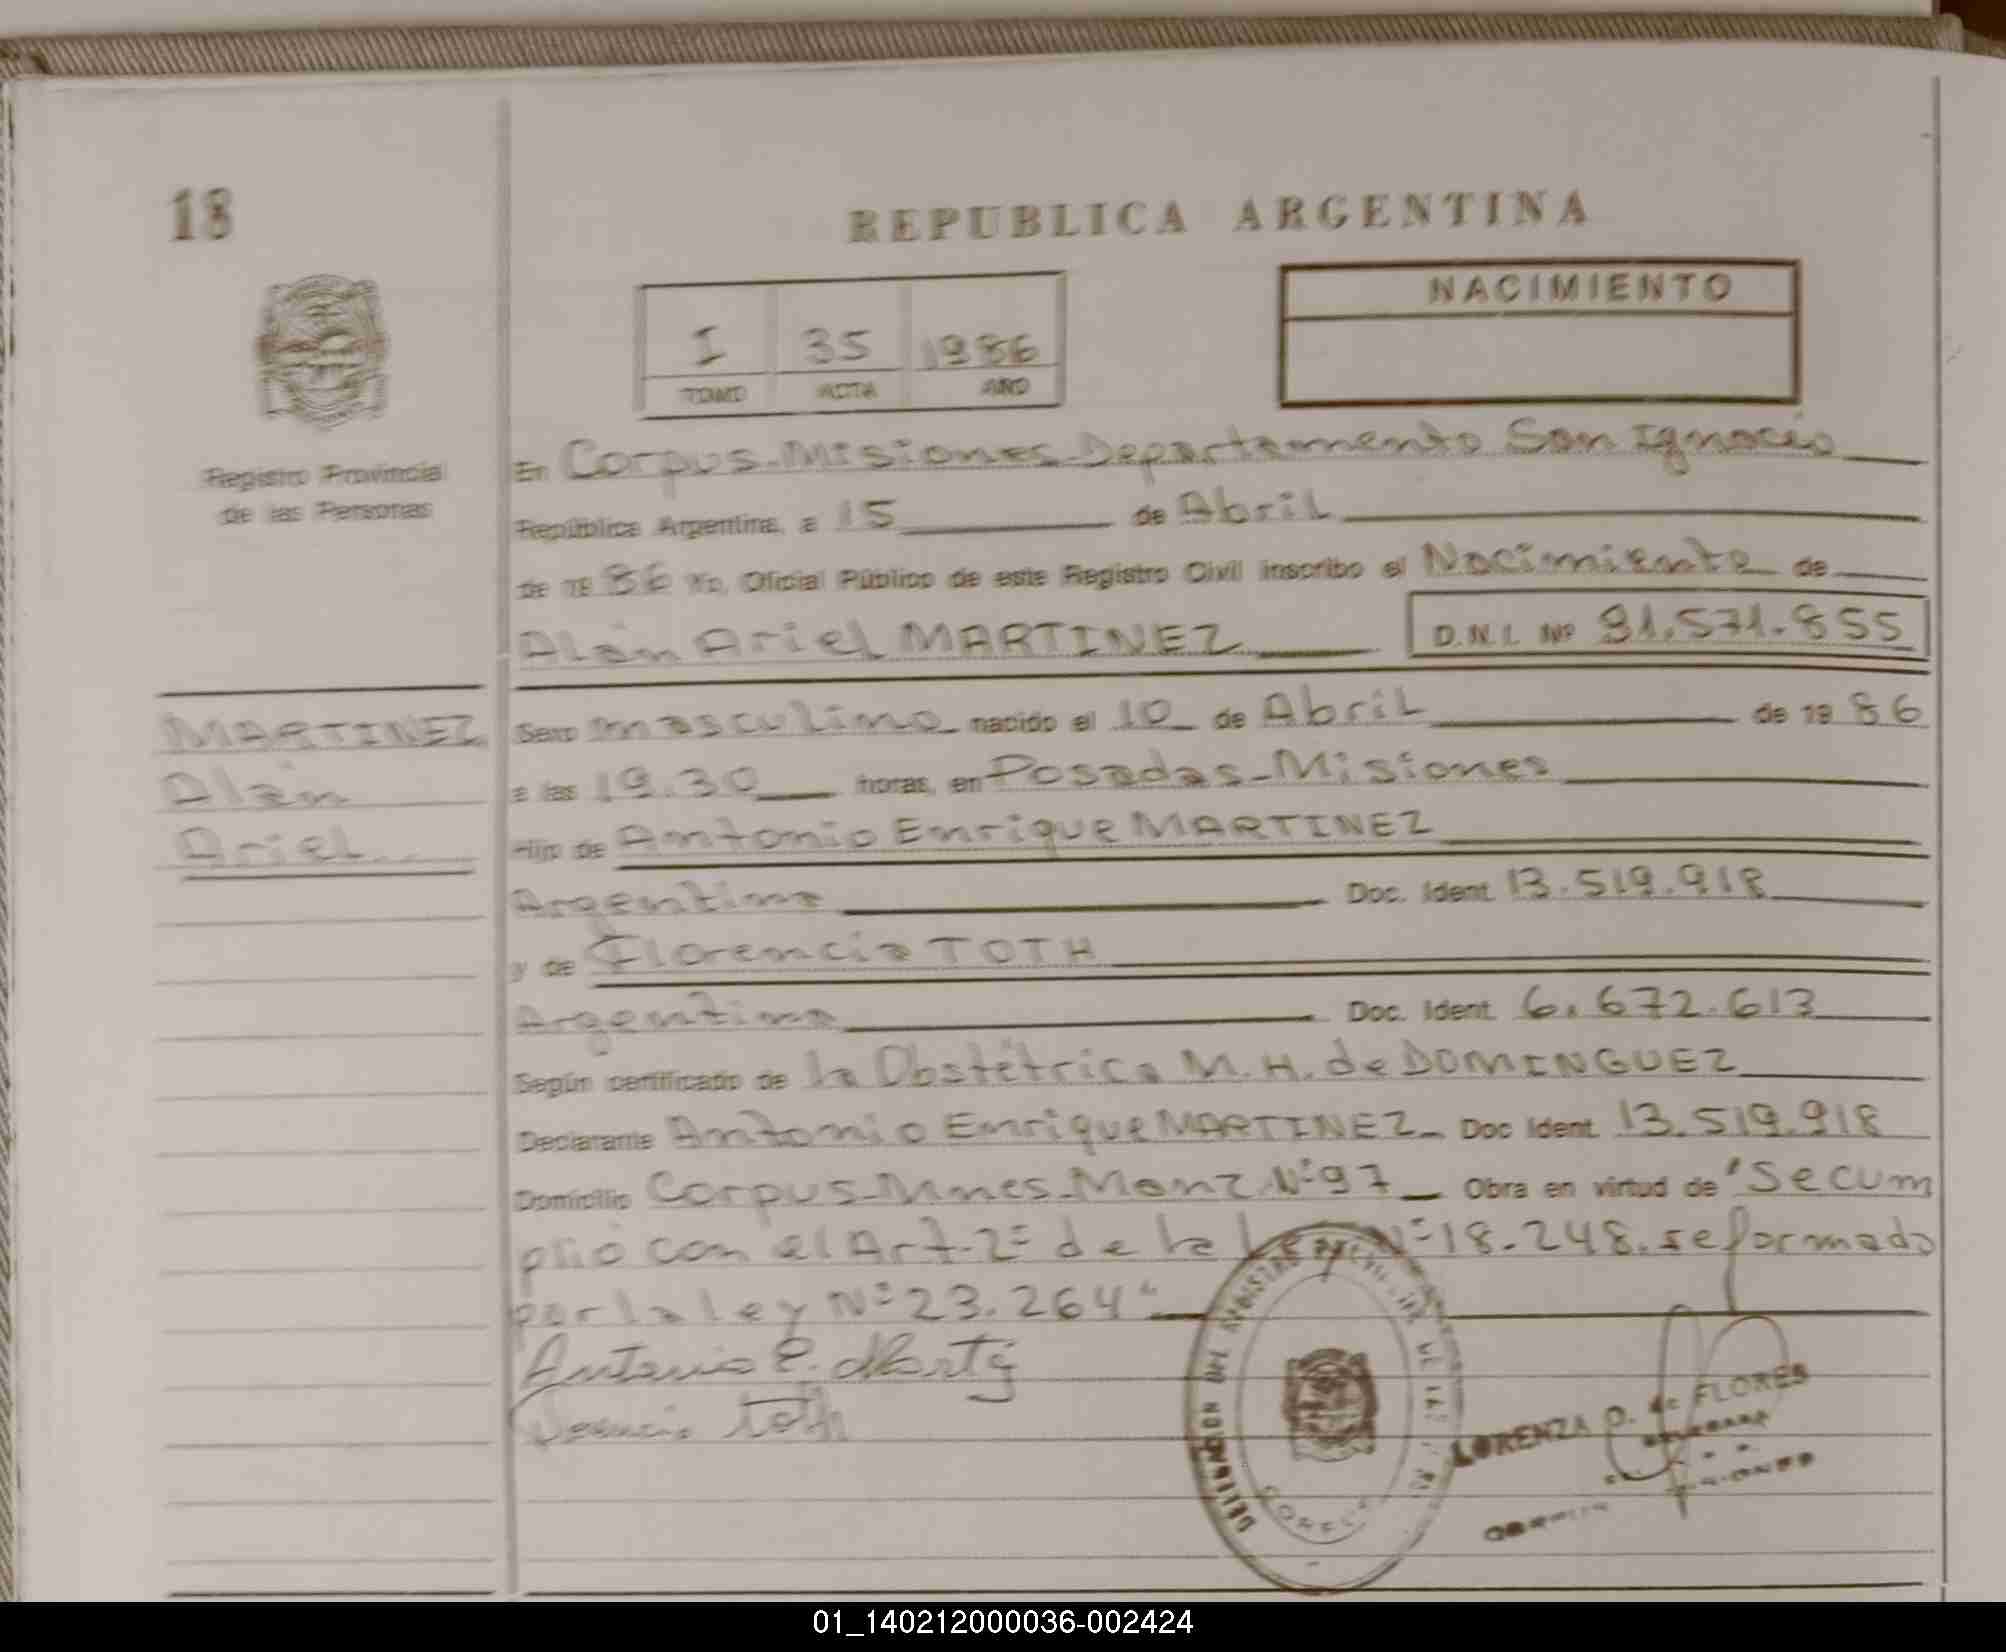 18
REPUBLICA ARGENTINA
NACIMIENTO
I 35 1986
TOMO ACTA AÑO
Registro Provincial
de las Personas
En Corpus-Misiones-Departamento San Ignacio
República Argentina, a 15 de Abril
de 19 86 Yo, Oficial Público de este Registro Civil inscribo el Nacimiento de
Alan Ariel MARTINEZ D.N.I. Nº 31.571.855
MARTINEZ
Alan
Ariel
Sexo masculino nacido el 10 de Abril de 19 86
a las 19.30 horas, en Posadas-Misiones
Hijo de Antonio Enrique MARTINEZ
Argentino Doc. Ident. 13.519.918
y de Florencia TOTH
Argentina Doc. Ident. 6.672.613
Según certificado de la Obstétrica M.H. de DOMINGUEZ
Declarante Antonio Enrique MARTINEZ Doc Ident. 13.519.918
Domicilio Corpus-Mnes-Manz.Nº97 Obra en virtud de "Se cum
plió con el Art-2º de la Ley Nº18.248.reformado
por la ley Nº23.264"
Antonio E.
Toth
DELEGACION DEL REGISTRO
CORPUS
LORENZA D. de FLORES
01_140212000036-002424